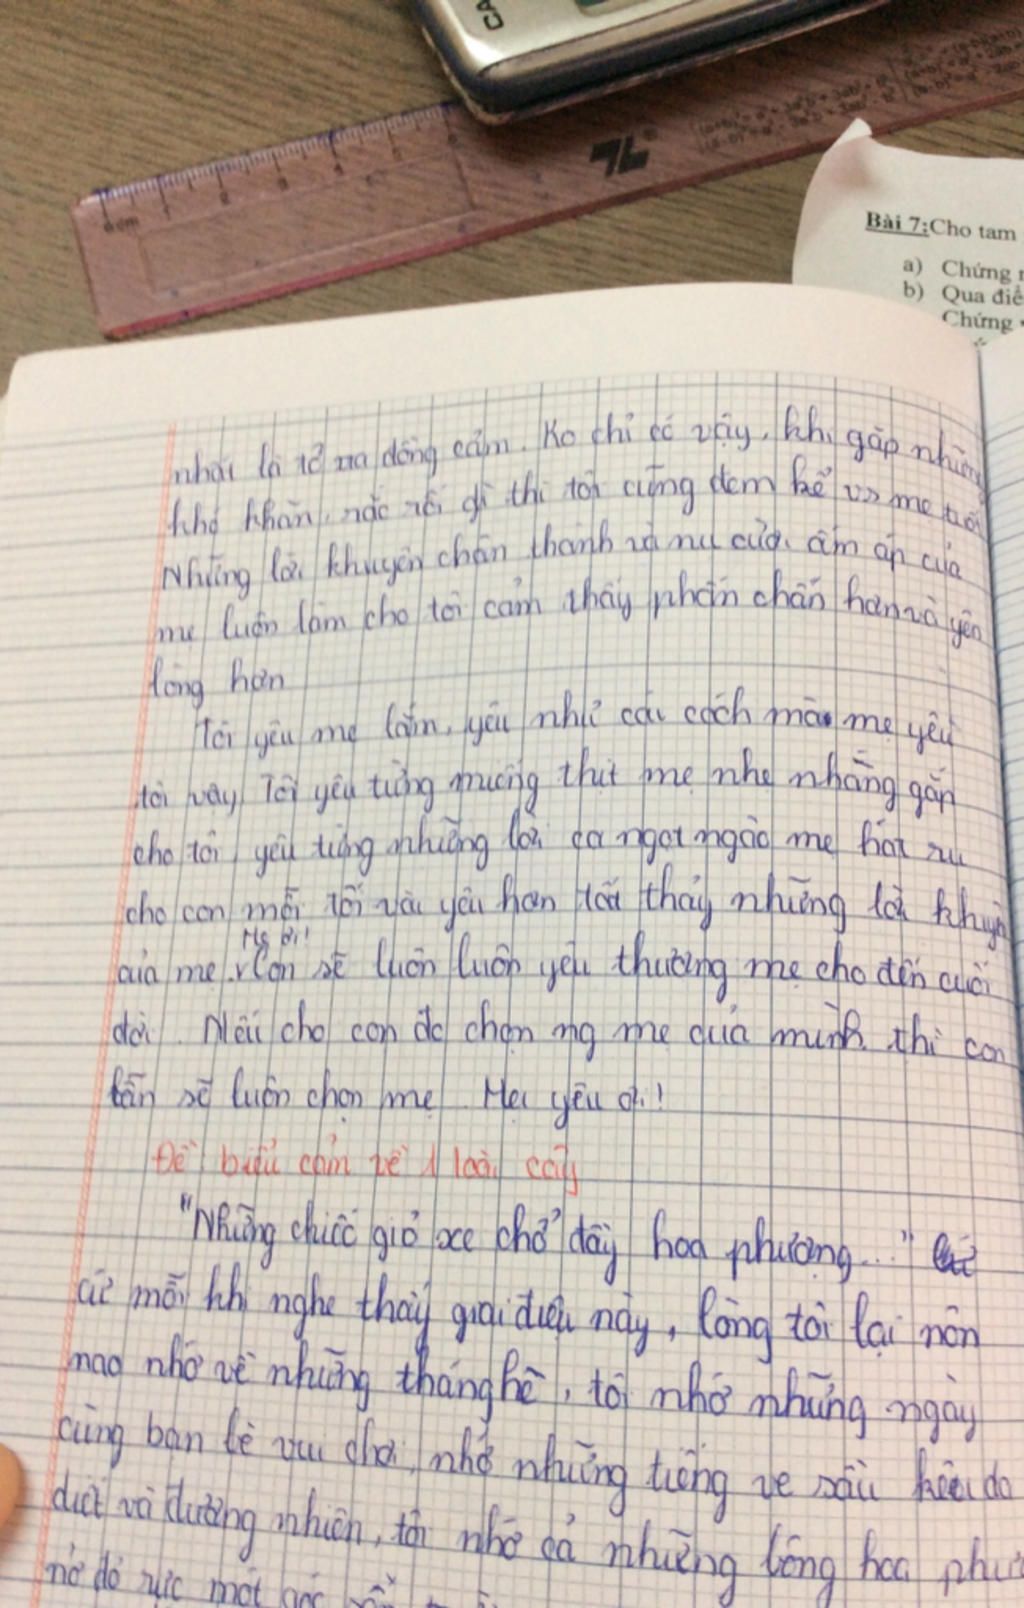 CA
0 cm
Bài 7: Cho tam
a) Chứng
b) Qua điể
Chứng
là tỏ ra đồng cảm. Ko chỉ có vậy, khi gặp những
khó khăn, rắc rối gì thì tôi cũng đem kể vs mẹ tôi
Những lời khuyên chân thành và nụ cười ấm áp của
mẹ luôn làm cho tôi cảm thấy phấn chấn hơn và yên
lòng hơn
Tôi yêu mẹ lắm, yêu như cái cách mà mẹ yêu
tôi vậy. Tôi yêu từng miếng thịt mẹ nhẹ nhàng gắp
cho tôi, yêu từng những lời ca ngọt ngào mẹ hát ru
cho con mỗi tối và yêu hơn tất thảy những lời khuyên
của mẹ. Mẹ ơi! Con sẽ luôn luôn yêu thương mẹ cho đến cuối
đời. Nếu cho con đc chọn ng mẹ của mình thì con
vẫn sẽ luôn chọn mẹ. Mẹ yêu ơi!
Đề biểu cảm về 1 loài cây
"Những chiếc giỏ xe chở đầy hoa phượng..."
cứ mỗi khi nghe thấy giai điệu này, lòng tôi lại nôn
nao nhớ về những tháng hè, tôi nhớ những ngày
cùng bạn bè vui chơi, nhớ những tiếng ve sầu kêu da
diết và đương nhiên, tôi nhớ cả những bông hoa phượ
nở đỏ rực một góc